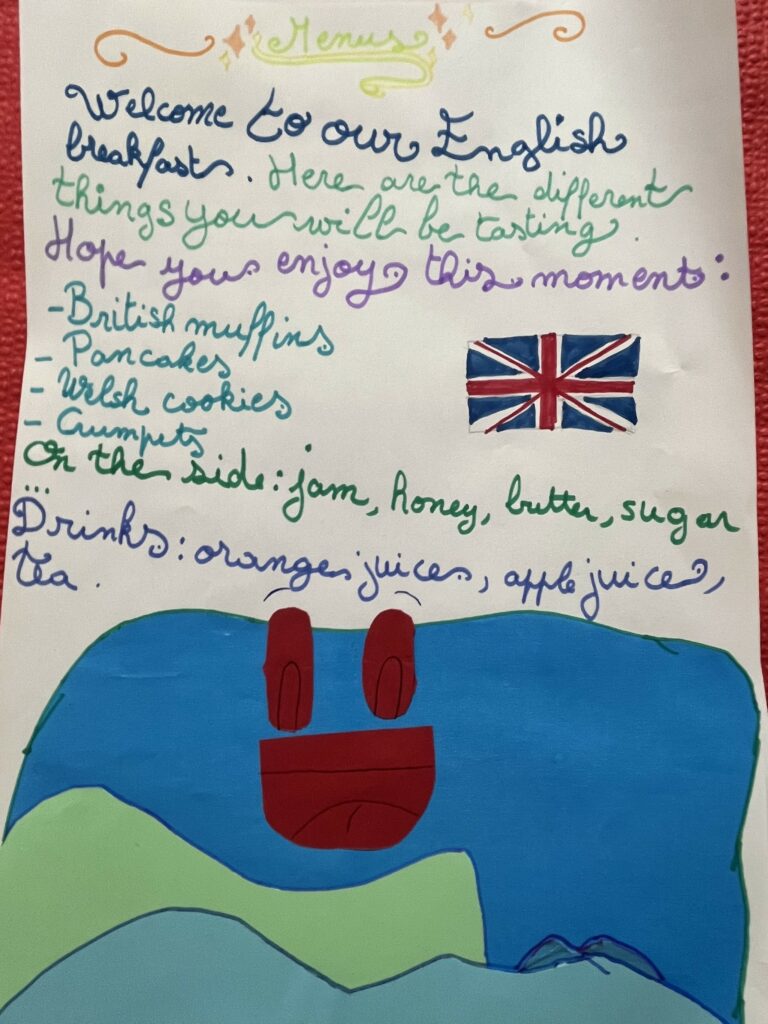 Menus
Welcome to our English
breakfast. Here are the different
things you will be tasting.
Hope you enjoy this moment:
- British muffins
- Pancakes
- Welsh cookies
- Crumpets
On the side: jam, honey, butter, sugar
...
Drinks: oranges juices, apple juice,
tea.